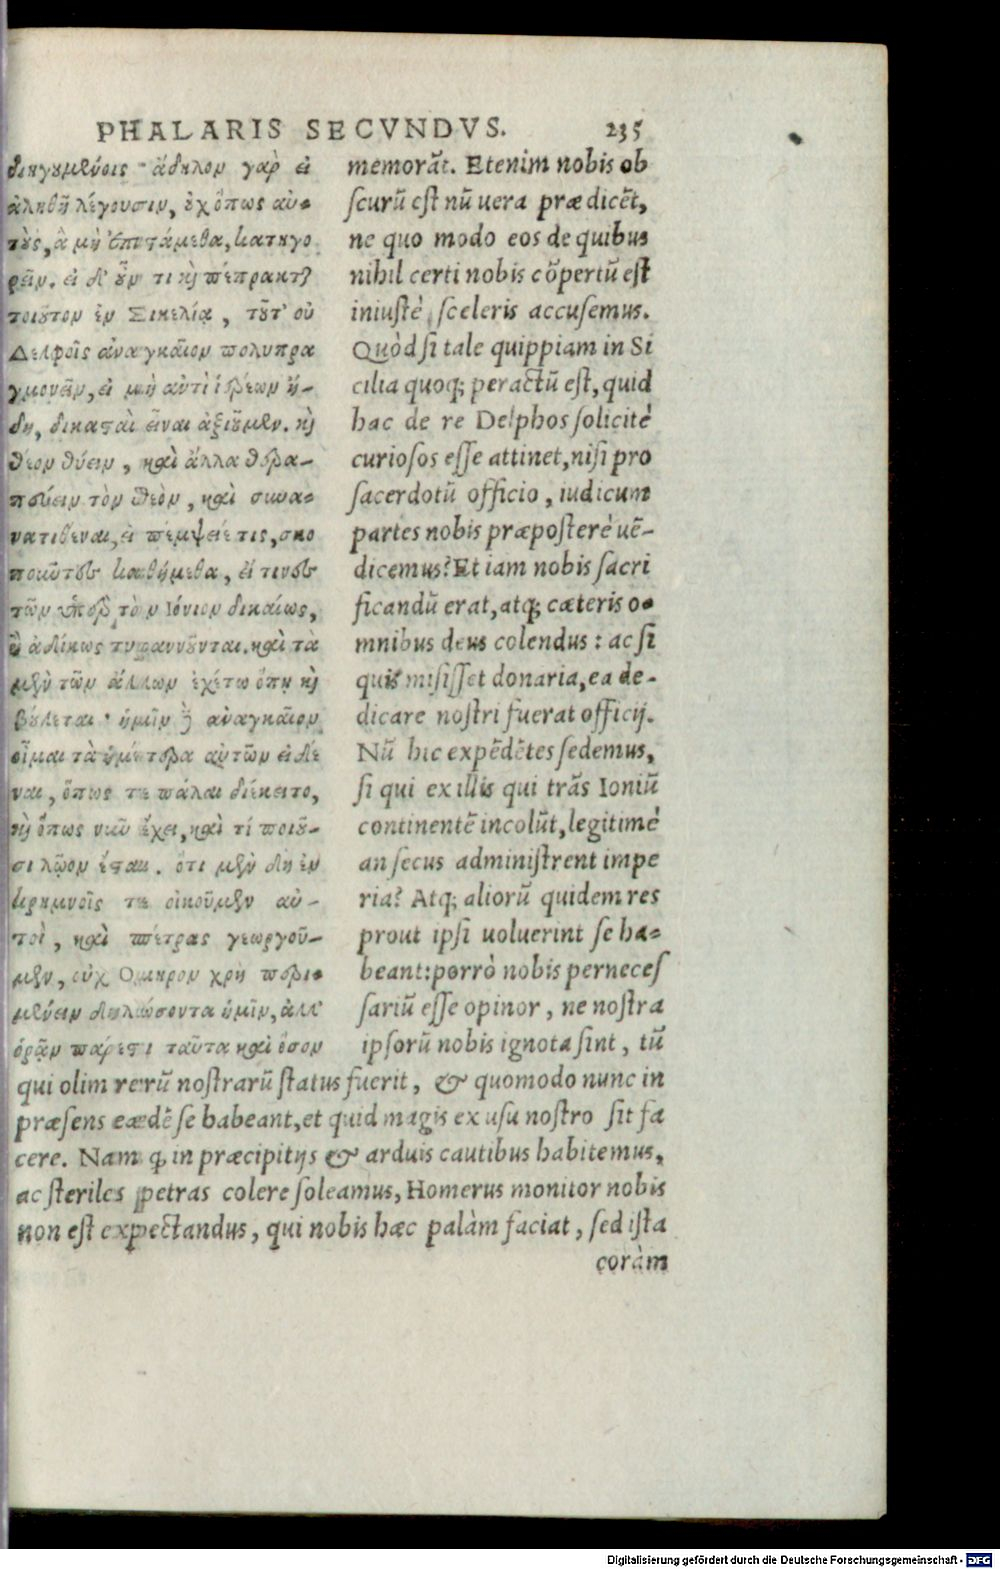 PHALARIS SECVNDVS. 235
διηγουμένοις · ἄδηλον γαρ εἰ
ἀληθῆ λέγουσιν, οὐχ ὅπως αὐ-
τοὺς, ἃ μὴ ἐπιστάμεθα, κατηγο
ρεῖν. εἰ δ' οὖν τι καὶ πέπρακται
τοιοῦτον ἐν Σικελίᾳ, τοῦτ' οὐ
Δελφοῖς ἀναγκαῖον πολυπρα
γμονεῖν, εἰ μὴ αὐτὶ ἱερέων ἤ-
δη, δικασταὶ εἶναι ἀξιοῦμεν. καὶ
θεὸν θύειν, καὶ ἄλλα θερα-
πεύειν τὸν θεὸν, καὶ συνα-
νατιθέναι, εἰ πέμψειέ τις, σκο
ποῦντες καθήμεθα, εἴ τινες
τῶν ὑπὲρ τὸν Ιόνιον δικαίως,
ἢ ἀδίκως τυραννοῦνται. καὶ τὰ
μὲν τῶν ἄλλων ἐχέτω ὅπῃ καὶ
βούλεται · ἡμῖν δὲ ἀναγκαῖον
οἶμαι τὰ ἡμέτερα αὐτῶν εἰδέ
ναι, ὅπως τε πάλαι διέκειτο,
καὶ ὅπως νῦν ἔχει, καὶ τί ποιοῦ-
σι λῷον ἔσται. ὅτι μὲν δὴ ἐν
κρημνοῖς τε οἰκοῦμεν αὐ-
τοὶ, καὶ πέτρας γεωργοῦ-
μεν, οὐχ Ομηρον χρὴ περι-
μένειν δηλώσοντα ἡμῖν, ἀλλ'
ὁρᾷν πάρεστι ταῦτα καὶ ὅσον
memorāt. Etenim nobis ob
scurū est nū uera prædicēt,
ne quo modo eos de quibus
nihil certi nobis cōpertū est
iniustè sceleris accusemus.
Quòd si tale quippiam in Si
cilia quoq; peractū est, quid
hac de re Delphos solicitè
curiosos esse attinet, nisi pro
sacerdotū officio, iudicum
partes nobis præposterè uē-
dicemus? Et iam nobis sacri
ficandū erat, atq; cæteris o-
mnibus deus colendus : ac si
quis misisset donaria, ea de-
dicare nostri fuerat officij.
Nū hic expēdētes sedemus,
si qui ex illis qui trās Ioniū
continentē incolūt, legitimè
an secus administrent impe
ria? Atq; aliorū quidem res
prout ipsi uoluerint se ha-
beant: porrò nobis perneces
sariū esse opinor, ne nostra
ipsorū nobis ignota sint, tū
qui olim rerū nostrarū status fuerit, & quomodo nunc in
præsens eædē se habeant, et quid magis ex usu nostro sit fa
cere. Nam q̄ in præcipitijs & arduis cautibus habitemus,
ac steriles petras colere soleamus, Homerus monitor nobis
non est expectandus, qui nobis hæc palàm faciat, sed ista
coràm
Digitalisierung gefördert durch die Deutsche Forschungsgemeinschaft - DFG